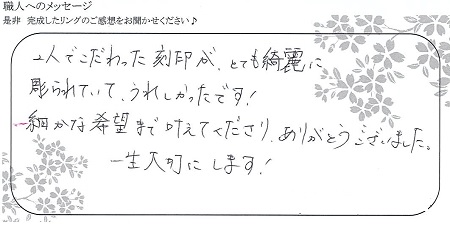 職人へのメッセージ
是非 完成したリングのご感想をお聞かせください♪
2人でこだわった刻印が、とても綺麗に
彫られていて、うれしかったです!
細かな希望まで叶えてくださり、ありがとうございました。
一生大切にします!